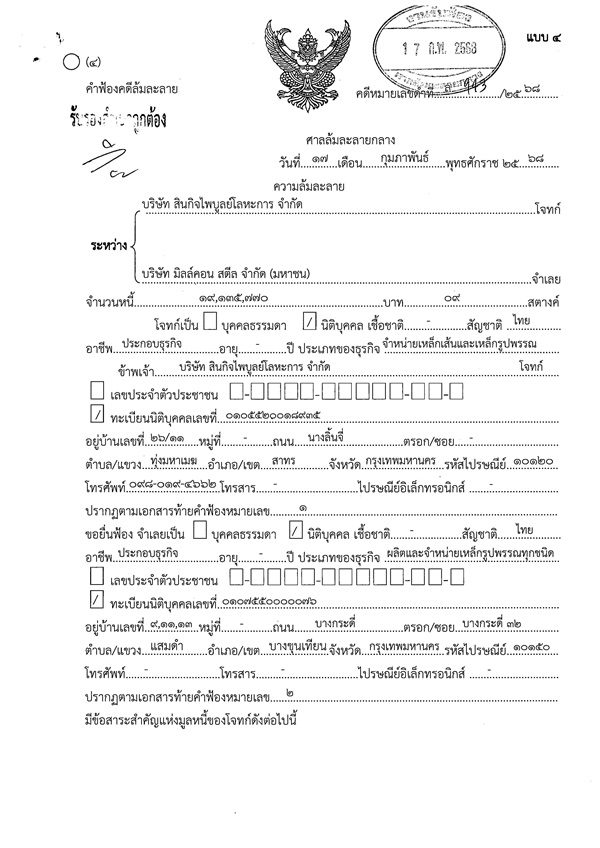 แบบ ๔
(๔)
งานรับฟ้อง
17 ก.พ. 2568
คำฟ้องคดีล้มละลาย
คดีหมายเลขดำที่ /๒๕๖๘
ศาลล้มละลายกลาง
วันที่ ๑๗ เดือน กุมภาพันธ์ พุทธศักราช ๒๕ ๖๘
ความล้มละลาย
บริษัท สินกิจไพบูลย์โลหะการ จำกัด โจทก์
ระหว่าง
บริษัท มิลล์คอน สตีล จำกัด (มหาชน) จำเลย
จำนวนหนี้ ๑๙,๑๓๕,๗๗๐ บาท ๐๙ สตางค์
โจทก์เป็น บุคคลธรรมดา / นิติบุคคล เชื้อชาติ - สัญชาติ ไทย
อาชีพ ประกอบธุรกิจ อายุ - ปี ประเภทของธุรกิจ จำหน่ายเหล็กเส้นและเหล็กรูปพรรณ
ข้าพเจ้า บริษัท สินกิจไพบูลย์โลหะการ จำกัด โจทก์
เลขประจำตัวประชาชน
/ ทะเบียนนิติบุคคลเลขที่ ๐๑๐๕๕๒๐๐๑๘๙๓๕
อยู่บ้านเลขที่ ๒๖/๑๑ หมู่ที่ - ถนน นางลิ้นจี่ ตรอก/ซอย -
ตำบล/แขวง ทุ่งมหาเมฆ อำเภอ/เขต สาทร จังหวัด กรุงเทพมหานคร รหัสไปรษณีย์ ๑๐๑๒๐
โทรศัพท์ ๐๙๘-๐๑๙-๔๖๖๒ โทรสาร - ไปรษณีย์อิเล็กทรอนิกส์ -
ปรากฏตามเอกสารท้ายคำฟ้องหมายเลข ๑
ขอยื่นฟ้อง จำเลยเป็น บุคคลธรรมดา / นิติบุคคล เชื้อชาติ - สัญชาติ ไทย
อาชีพ ประกอบธุรกิจ อายุ - ปี ประเภทของธุรกิจ ผลิตและจำหน่ายเหล็กรูปพรรณทุกชนิด
เลขประจำตัวประชาชน
/ ทะเบียนนิติบุคคลเลขที่ ๐๑๐๗๕๕๐๐๐๐๐๗๖
อยู่บ้านเลขที่ ๙,๑๑,๑๓ หมู่ที่ - ถนน บางกระดี่ ตรอก/ซอย บางกระดี่ ๓๒
ตำบล/แขวง แสมดำ อำเภอ/เขต บางขุนเทียน จังหวัด กรุงเทพมหานคร รหัสไปรษณีย์ ๑๐๑๕๐
โทรศัพท์ - โทรสาร - ไปรษณีย์อิเล็กทรอนิกส์ -
ปรากฏตามเอกสารท้ายคำฟ้องหมายเลข ๒
มีข้อสาระสำคัญแห่งมูลหนี้ของโจทก์ดังต่อไปนี้